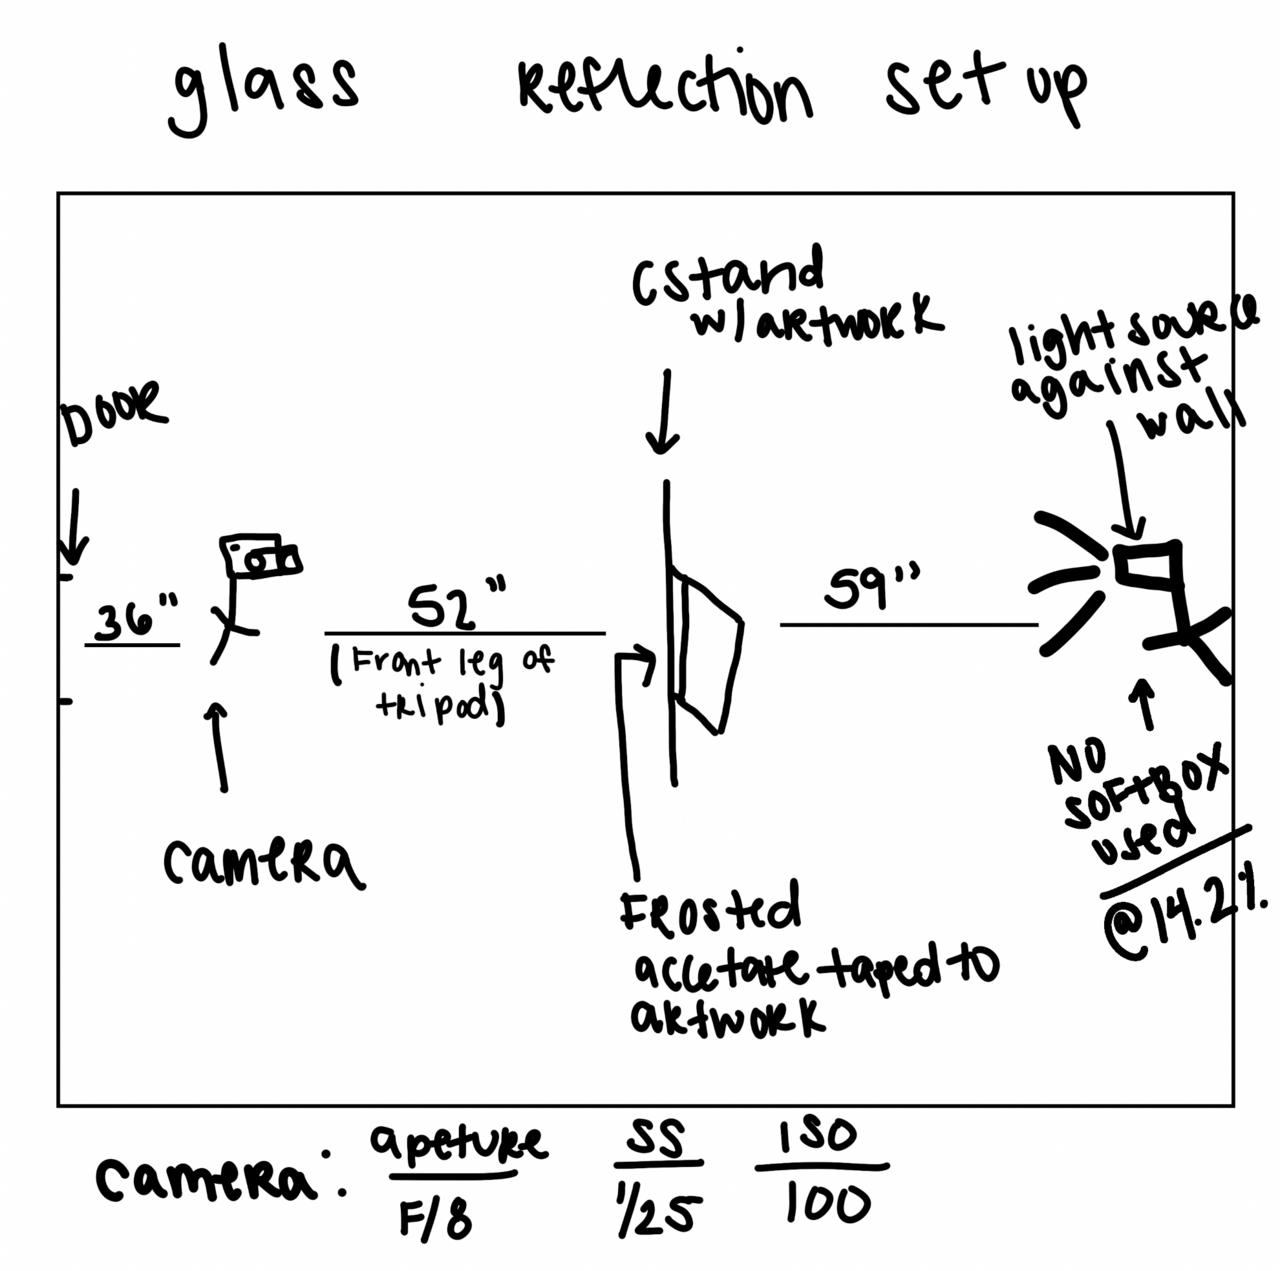 glass reflection set up
Cstand
w/ artwork
light source
against
wall
DOOR
36"
52"
(Front leg of
tripod)
59"
camera
NO
SOFTBOX
used
@14.2%.
FRosted
accetate taped to
artwork
camera: apeture SS ISO
F/8 1/25 100